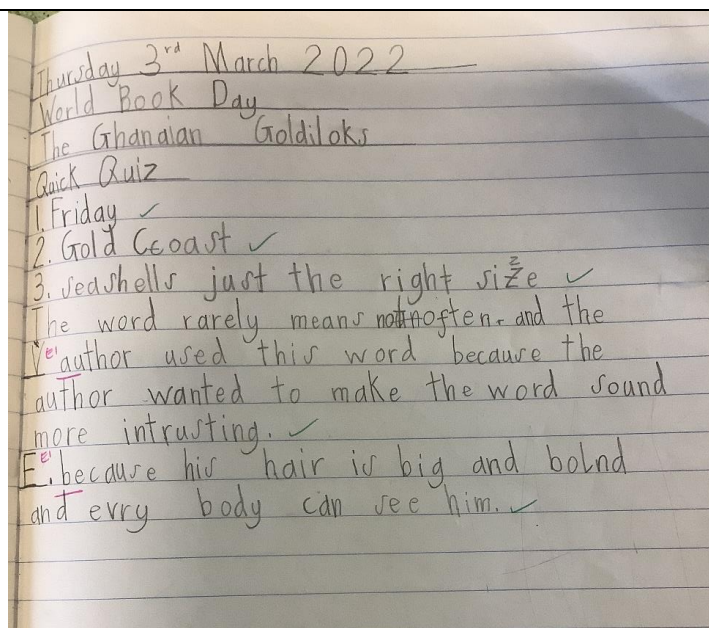 Thursday 3rd March 2022
World Book Day
The Ghanaian Goldiloks
Quick Quiz
1. Friday ✓
2. Gold Coast ✓
3. seashells just the right size ✓
The word rarely means not often. and the
V author used this word because the
author wanted to make the word sound
more intrusting. ✓
E. because his hair is big and bolnd
and evry body can see him. ✓